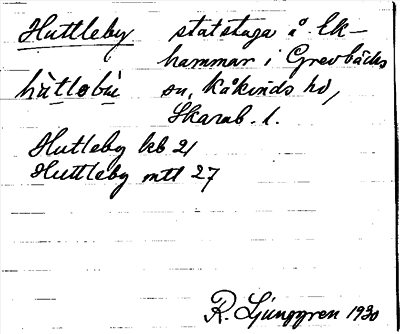 Huttleby statstuga å Ek-
hammar i Grevbäcks
hùtləbù sn, Kåkinds hd,
Skarab. l.
Hutleby kb 21
Huttleby mtl 27
R. Ljunggren 1930